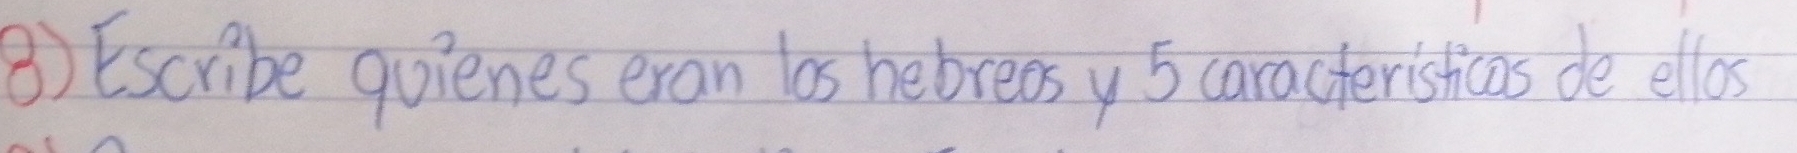 8) Escribe quienes eran los hebreos y 5 caracteristicas de ellos